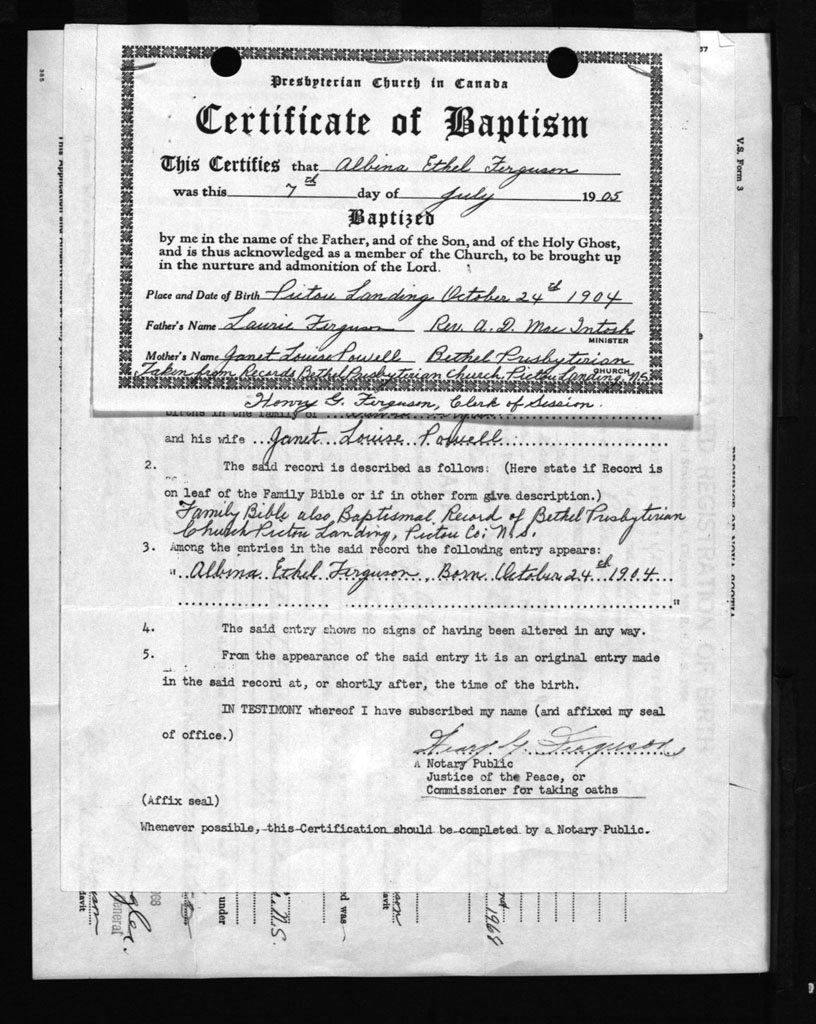 Presbyterian Church in Canada
Certificate of Baptism
This Certifies that Albina Ethel Ferguson
was this 7th day of July 1905
Baptized
by me in the name of the Father, and of the Son, and of the Holy Ghost,
and is thus acknowledged as a member of the Church, to be brought up
in the nurture and admonition of the Lord.
Place and Date of Birth Pictou Landing October 24th 1904
Father's Name Laurie Ferguson Rev. A. D. Mac Intosh
MINISTER
Mother's Name Janet Louise Powell Bethel Presbyterian
CHURCH
Taken from Records Bethel Presbyterian Church, Pictou Landing, N.S.
Henry G. Ferguson, Clerk of Session.
births in the family of
and his wife Janet Louise Powell
2. The said record is described as follows: (Here state if Record is
on leaf of the Family Bible or if in other form give description.)
Family Bible also Baptismal Record of Bethel Presbyterian
Church Pictou Landing, Pictou Co; N.S.
3. Among the entries in the said record the following entry appears:
" Albina Ethel Ferguson, Born October 24th 1904
"
4. The said entry shows no signs of having been altered in any way.
5. From the appearance of the said entry it is an original entry made
in the said record at, or shortly after, the time of the birth.
IN TESTIMONY whereof I have subscribed my name (and affixed my seal
of office.)
Henry G. Ferguson
A Notary Public
Justice of the Peace, or
Commissioner for taking oaths
(Affix seal)
Whenever possible, this Certification should be completed by a Notary Public.
V.S. Form 3
under
N.S.
d was
1968